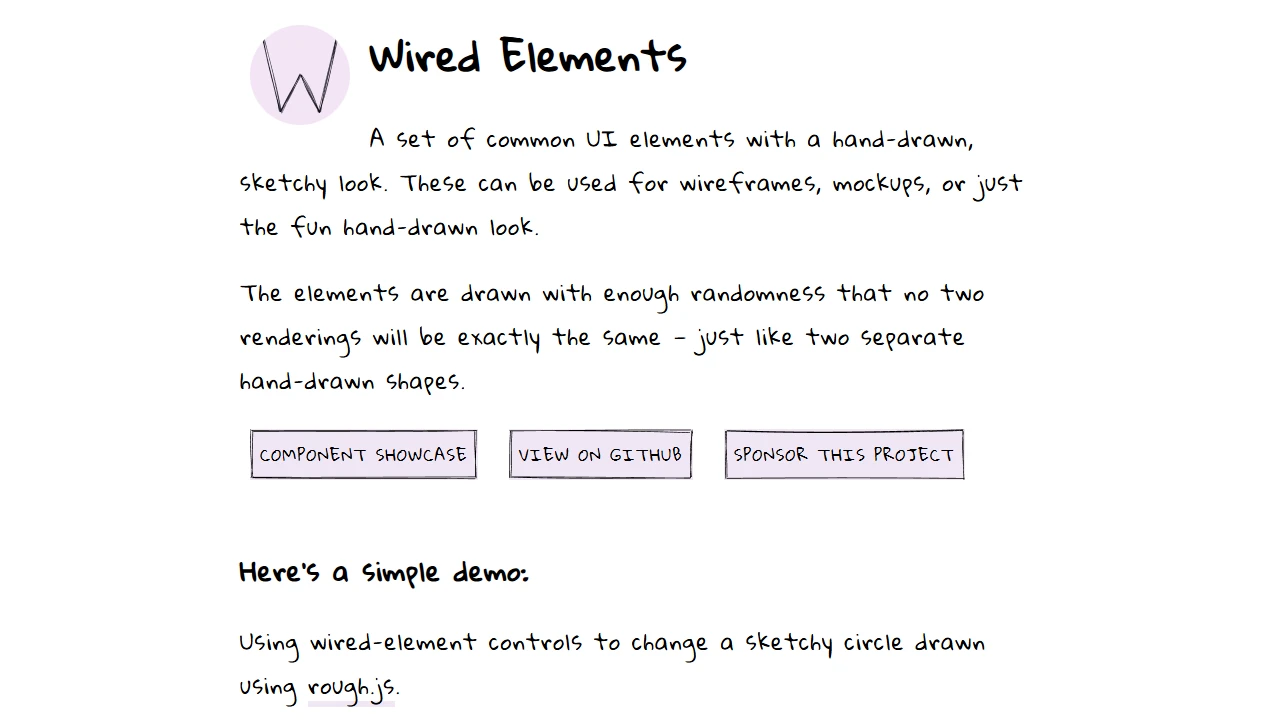 W
Wired Elements
A set of common UI elements with a hand-drawn,
sketchy look. These can be used for wireframes, mockups, or just
the fun hand-drawn look.
The elements are drawn with enough randomness that no two
renderings will be exactly the same - just like two separate
hand-drawn shapes.
COMPONENT SHOWCASE VIEW ON GITHUB SPONSOR THIS PROJECT
Here's a simple demo:
Using wired-element controls to change a sketchy circle drawn
using rough.js.